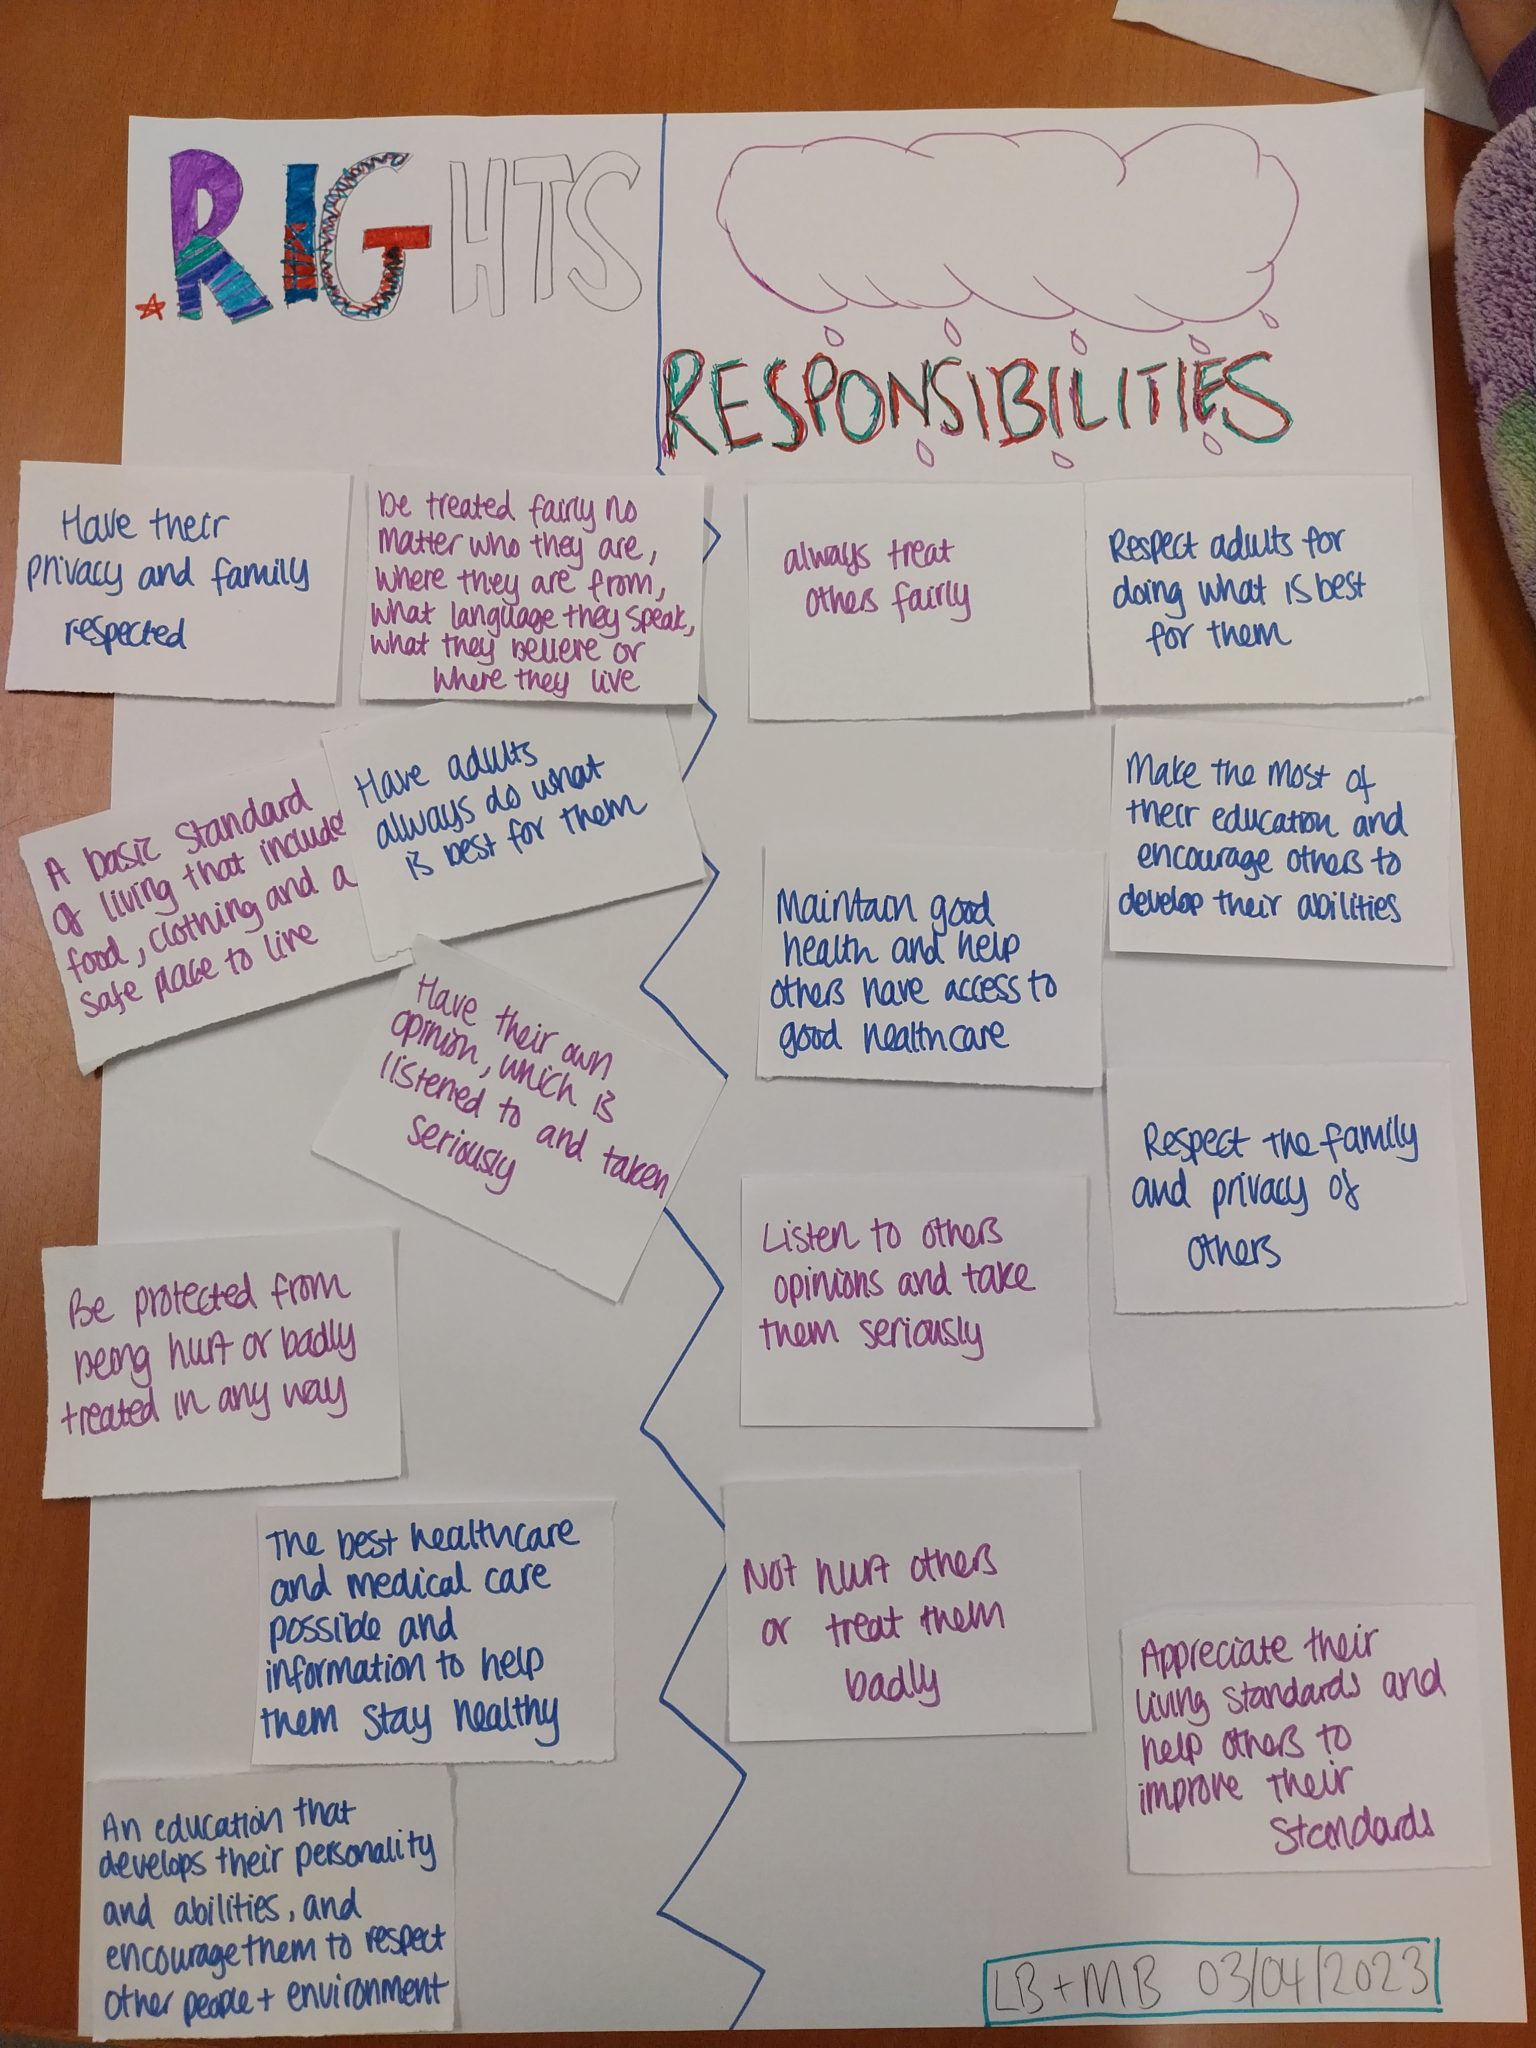 RIGHTS
RESPONSIBILITIES
Have their
privacy and family
respected
be treated fairly no
matter who they are,
where they are from,
what language they speak,
what they believe or
where they live
A basic standard
of living that include
food, clothing and a
safe place to live
Have adults
always do what
is best for them
Have their own
opinion, which is
listened to and taken
seriously
Be protected from
being hurt or badly
treated in any way
The best healthcare
and medical care
possible and
information to help
them stay healthy
An education that
develops their personality
and abilities, and
encourage them to respect
other people + environment
always treat
others fairly
Respect adults for
doing what is best
for them
Make the most of
their education and
encourage others to
develop their abilities
Maintain good
health and help
others have access to
good healthcare
Respect the family
and privacy of
others
Listen to others
opinions and take
them seriously
Not hurt others
or treat them
badly
Appreciate their
living standards and
help others to
improve their
standards
LB + MB 03/04/2023